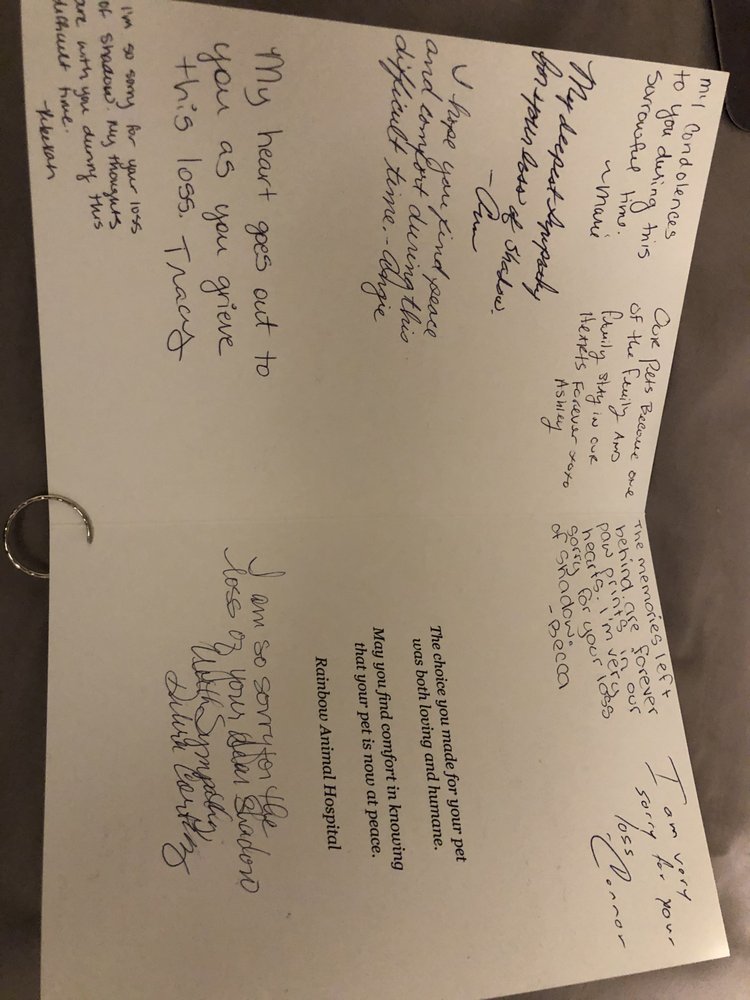 My condolences
to you during this
sorrowful time.
~Marie
My deepest sympathy
for your loss of Shadow.
- Ann
I hope you find peace
and comfort during this
difficult time. - Angie
My heart goes out to
you as you grieve
this loss. Tracy
I'm so sorry for your loss
of Shadow. My thoughts
are with you during this
difficult time.
-Rebekah
Our Pets Become one
of the family AND
family stay in our
Hearts Forever xoxo
Ashley
The memories left
behind are forever
paw prints in our
hearts. I'm very
sorry for your loss
of Shadow.
-Becca
I am very
sorry for your
loss
-Connor
The choice you made for your pet
was both loving and humane.
May you find comfort in knowing
that your pet is now at peace.
Rainbow Animal Hospital
I am so sorry for the
loss of your dear Shadow
With Sympathy,